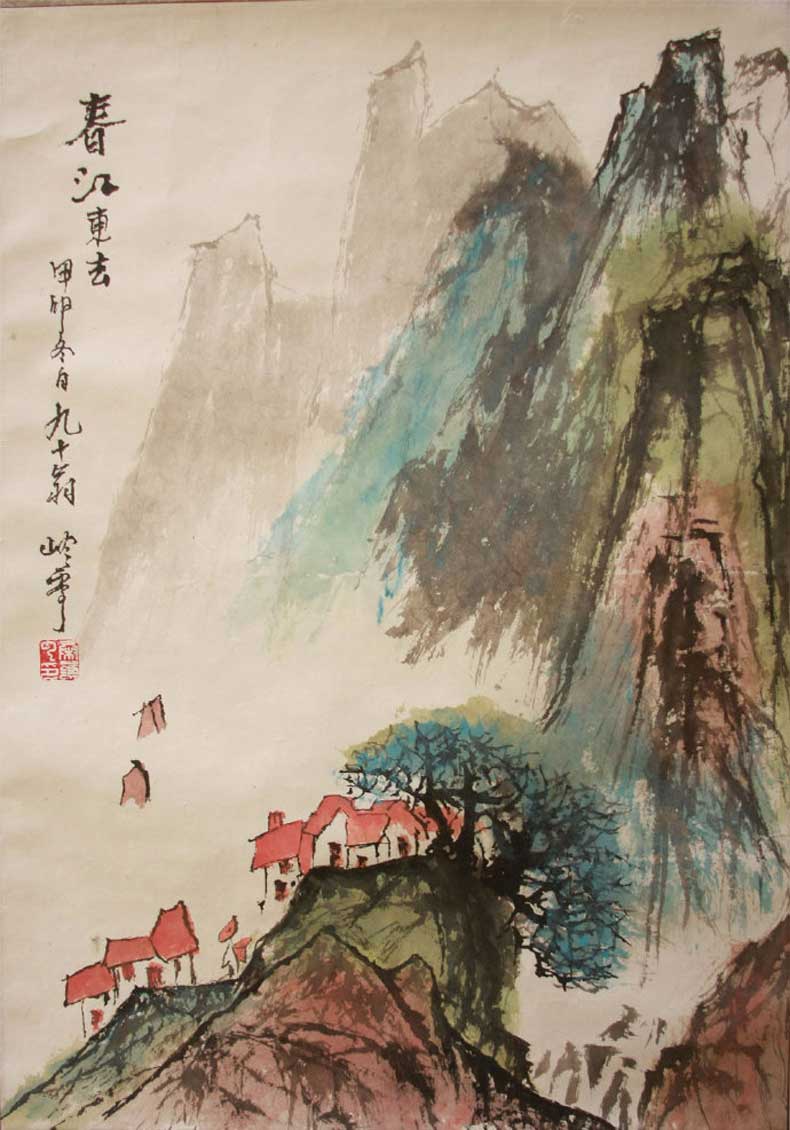 春江東去
甲卯冬日九十翁